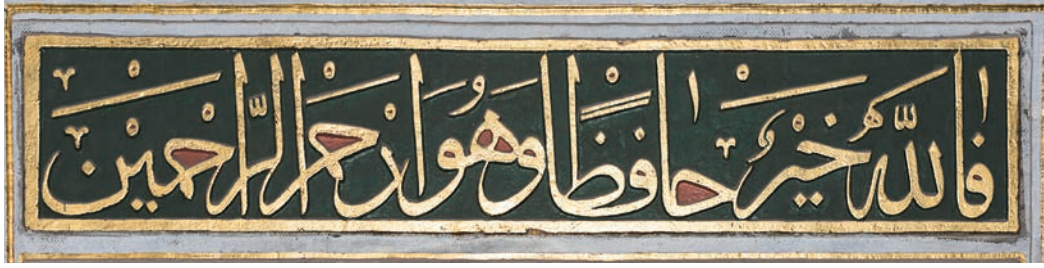 فَاللّٰهُ خَيْرٌ حَافِظًا وَهُوَ اَرْحَمُ الرَّاحِمِينَ